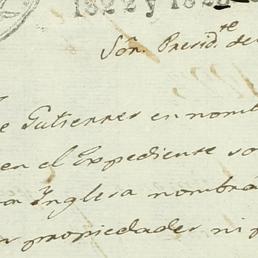 1822 y 182
Sôr. Presid.te de
e Gutierres en nom
en el Expediente so
a Inglesa nombra
propiedades ni